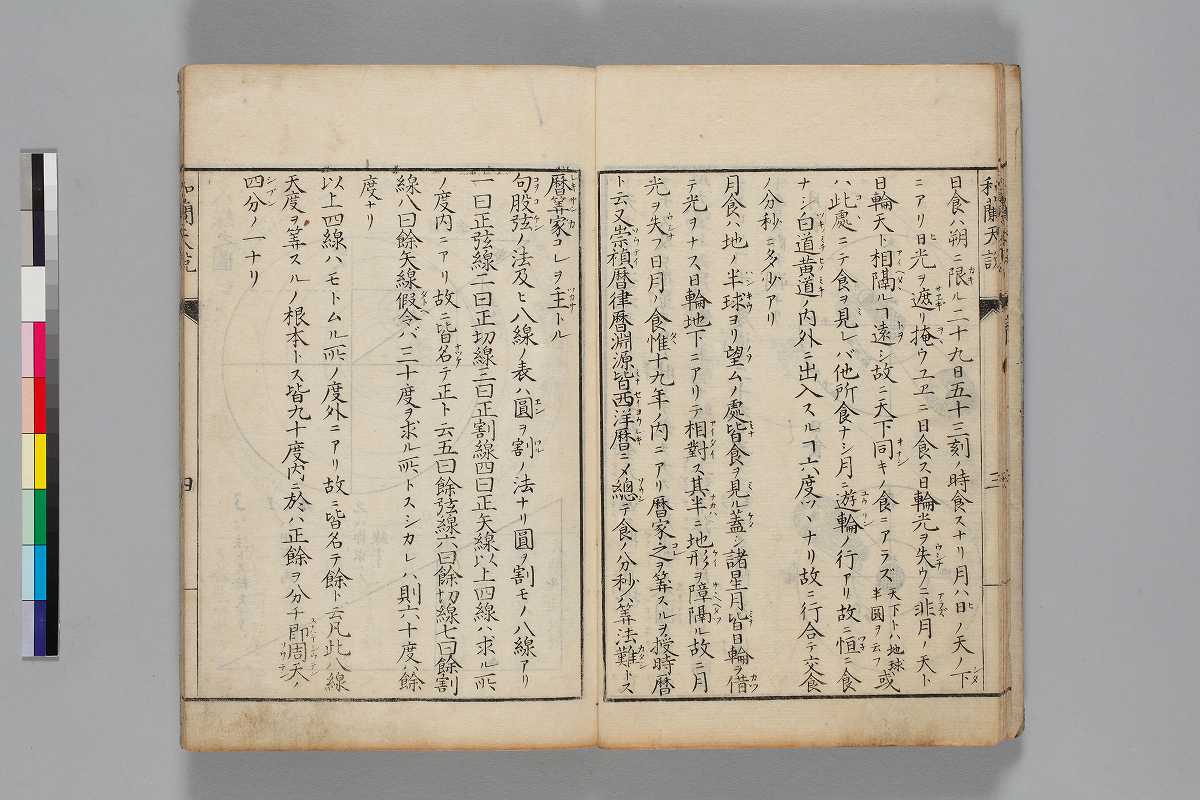 日食ハ朔ニ限ル二十九日五十三刻ノ時食スナリ月ハ日ノ天ノ下
ニアリ日光ヲ遮リ掩ウユヱニ日食ス日輪光ヲ失ウニ非月ノ天ト
日輪天ト相隔ルヿ遠シ故ニ天下同キノ食ニアラズ天下トハ地球半圓ヲ云フ或
ハ此處ニテ食ヲ見レバ他所食ナシ月ニ遊輪ノ行アリ故ニ恒ニ食
ナシ白道黄道ノ内外ニ出入スルヿ六度ツヽナリ故ニ行合テ交食
ノ分秒ニ多少アリ
月食ハ地ノ半球ヨリ望ムノ處皆食ヲ見ル蓋シ諸星月皆日輪ヲ借
テ光ヲナス日輪地下ニアリテ相對ス其半ニ地形ヲ障隔ル故ニ月
光ヲ失フ日月ノ食惟十九年ノ内ニアリ暦家之ヲ筭スルヲ授時暦
ト云又崇禎暦律暦淵源皆西洋暦ニメ總テ食ノ分秒ハ筭法難トス
和蘭天説
三
暦筭家コレヲ主トル
句股弦ノ法及ヒ八線ノ表ハ圓ヲ割ノ法ナリ圓ヲ割モノ八線アリ
一曰正弦線二曰正切線三曰正割線四曰正矢線以上四線ハ求ル所
ノ度内ニアリ故ニ皆名テ正ト云五曰餘弦線六曰餘切線七曰餘割
線八曰餘矢線假令バ三十度ヲ求ル所トスシカレハ則六十度ハ餘
度ナリ
以上四線ハモトムル所ノ度外ニアリ故ニ皆名テ餘ト云凡此八線
天度ヲ筭スルノ根本トス皆九十度内ニ於ハ正餘ヲ分チ即周天ノ
四分ノ一ナリ
四